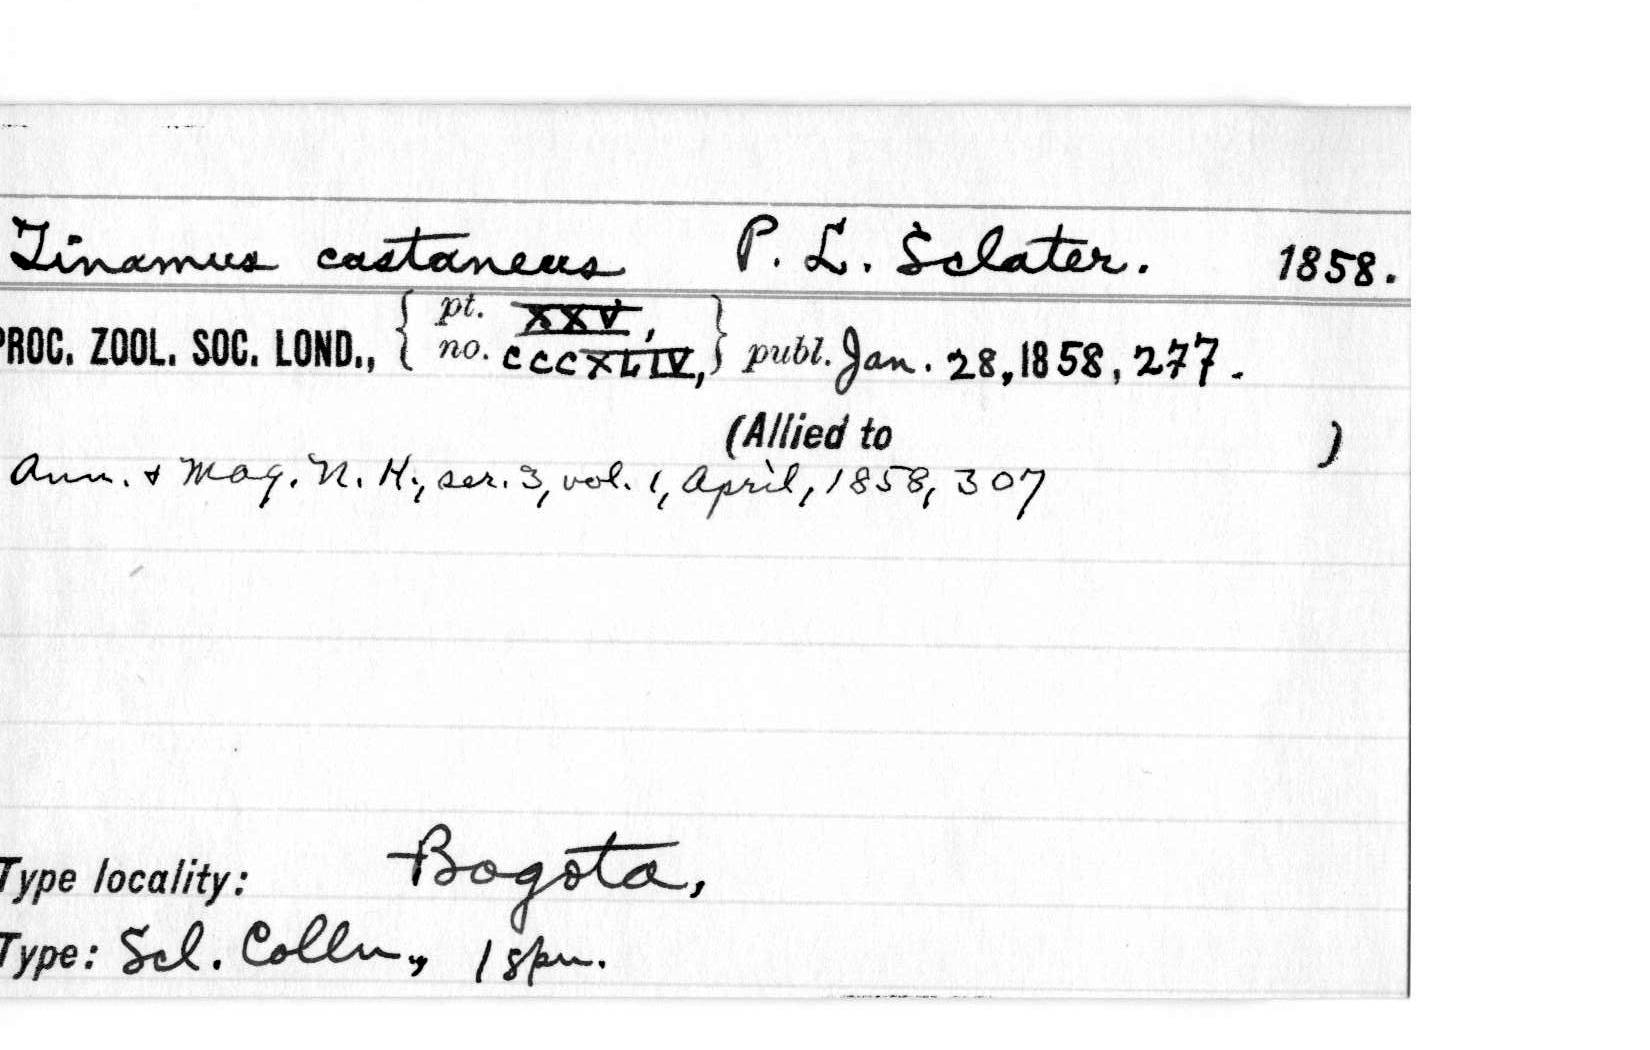 Tinamus castaneus P. L. Sclater. 1858.
PROC. ZOOL. SOC. LOND., { pt. XXV, no. CCCXLIV, } publ. Jan. 28, 1858, 277.
(Allied to )
Ann. & Mag. N. H., ser. 3, vol. 1, April, 1858, 307
Type locality: Bogota,
Type: Scl. Colln., 1 spn.